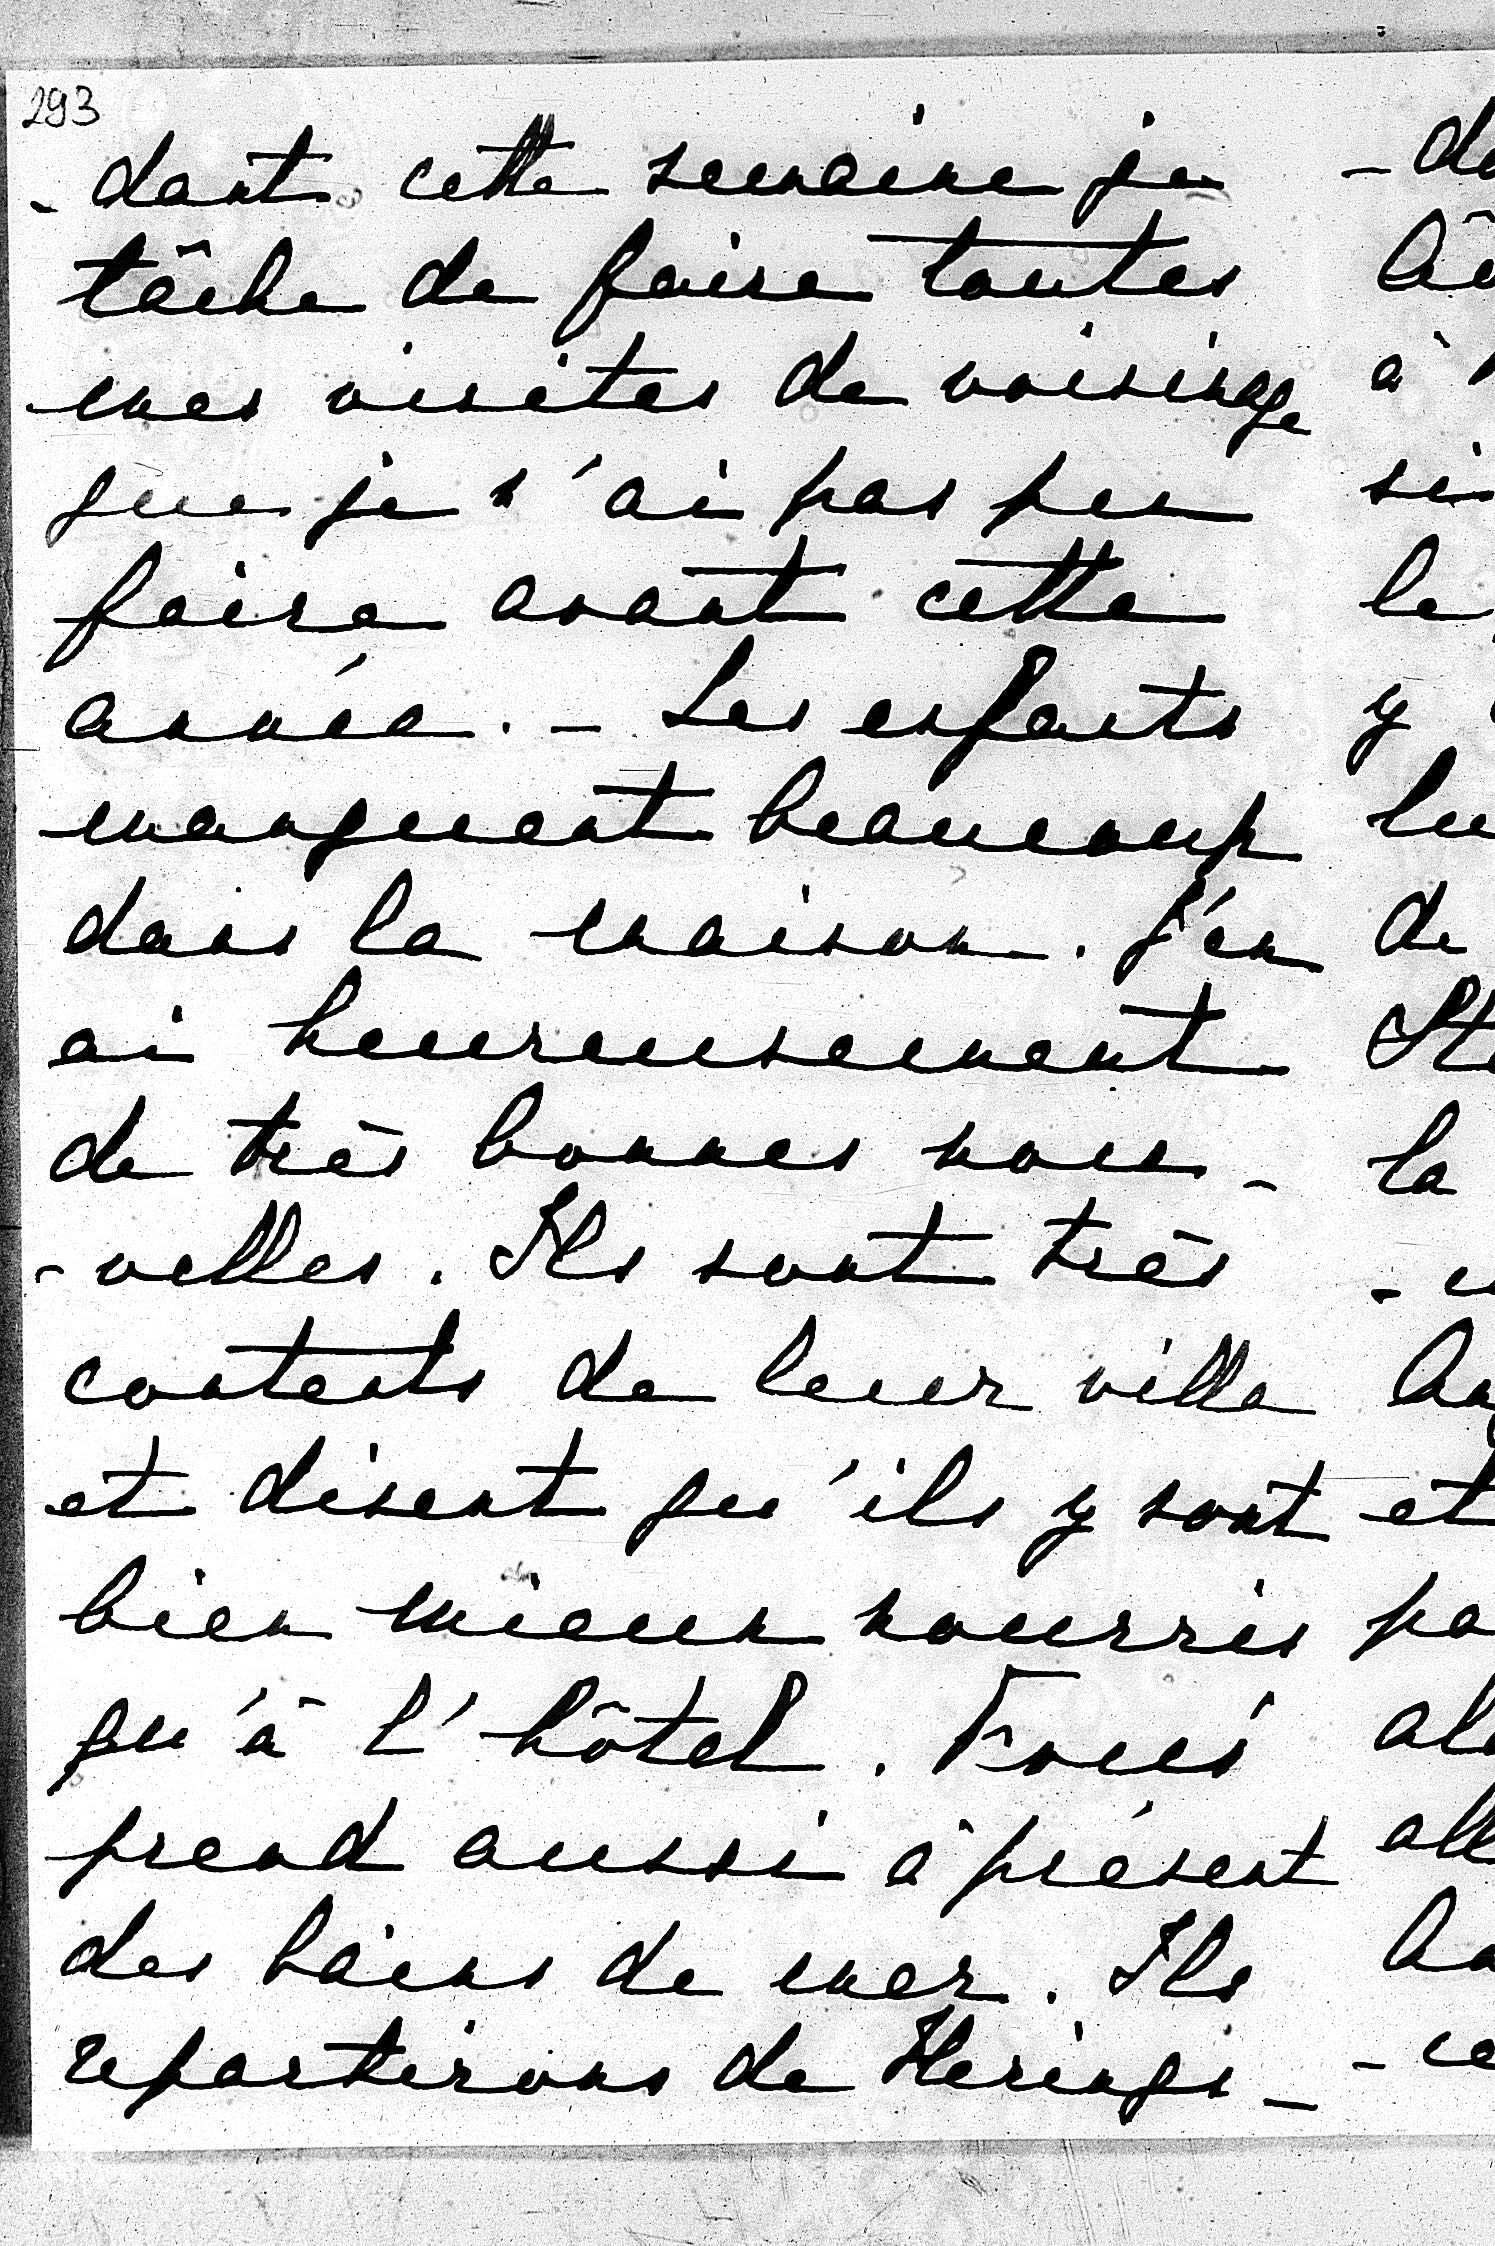 293
- dant cette semaine je
tâche de faire toutes
mes visites de voisinage
que je n'ai pas pu
faire avant cette
année. - Les enfants
manquent beaucoup
dans la maison. J'en
ai heureusement
de très bonnes nou-
- velles. Ils sont très
contents de leur villa
et disent qu'ils y sont
bien mieux nourris
qu'à l'hôtel.
prend aussi à présent
des bains de mer. Ils
repartirons de Herings-
à
si
le
y
de
la
et